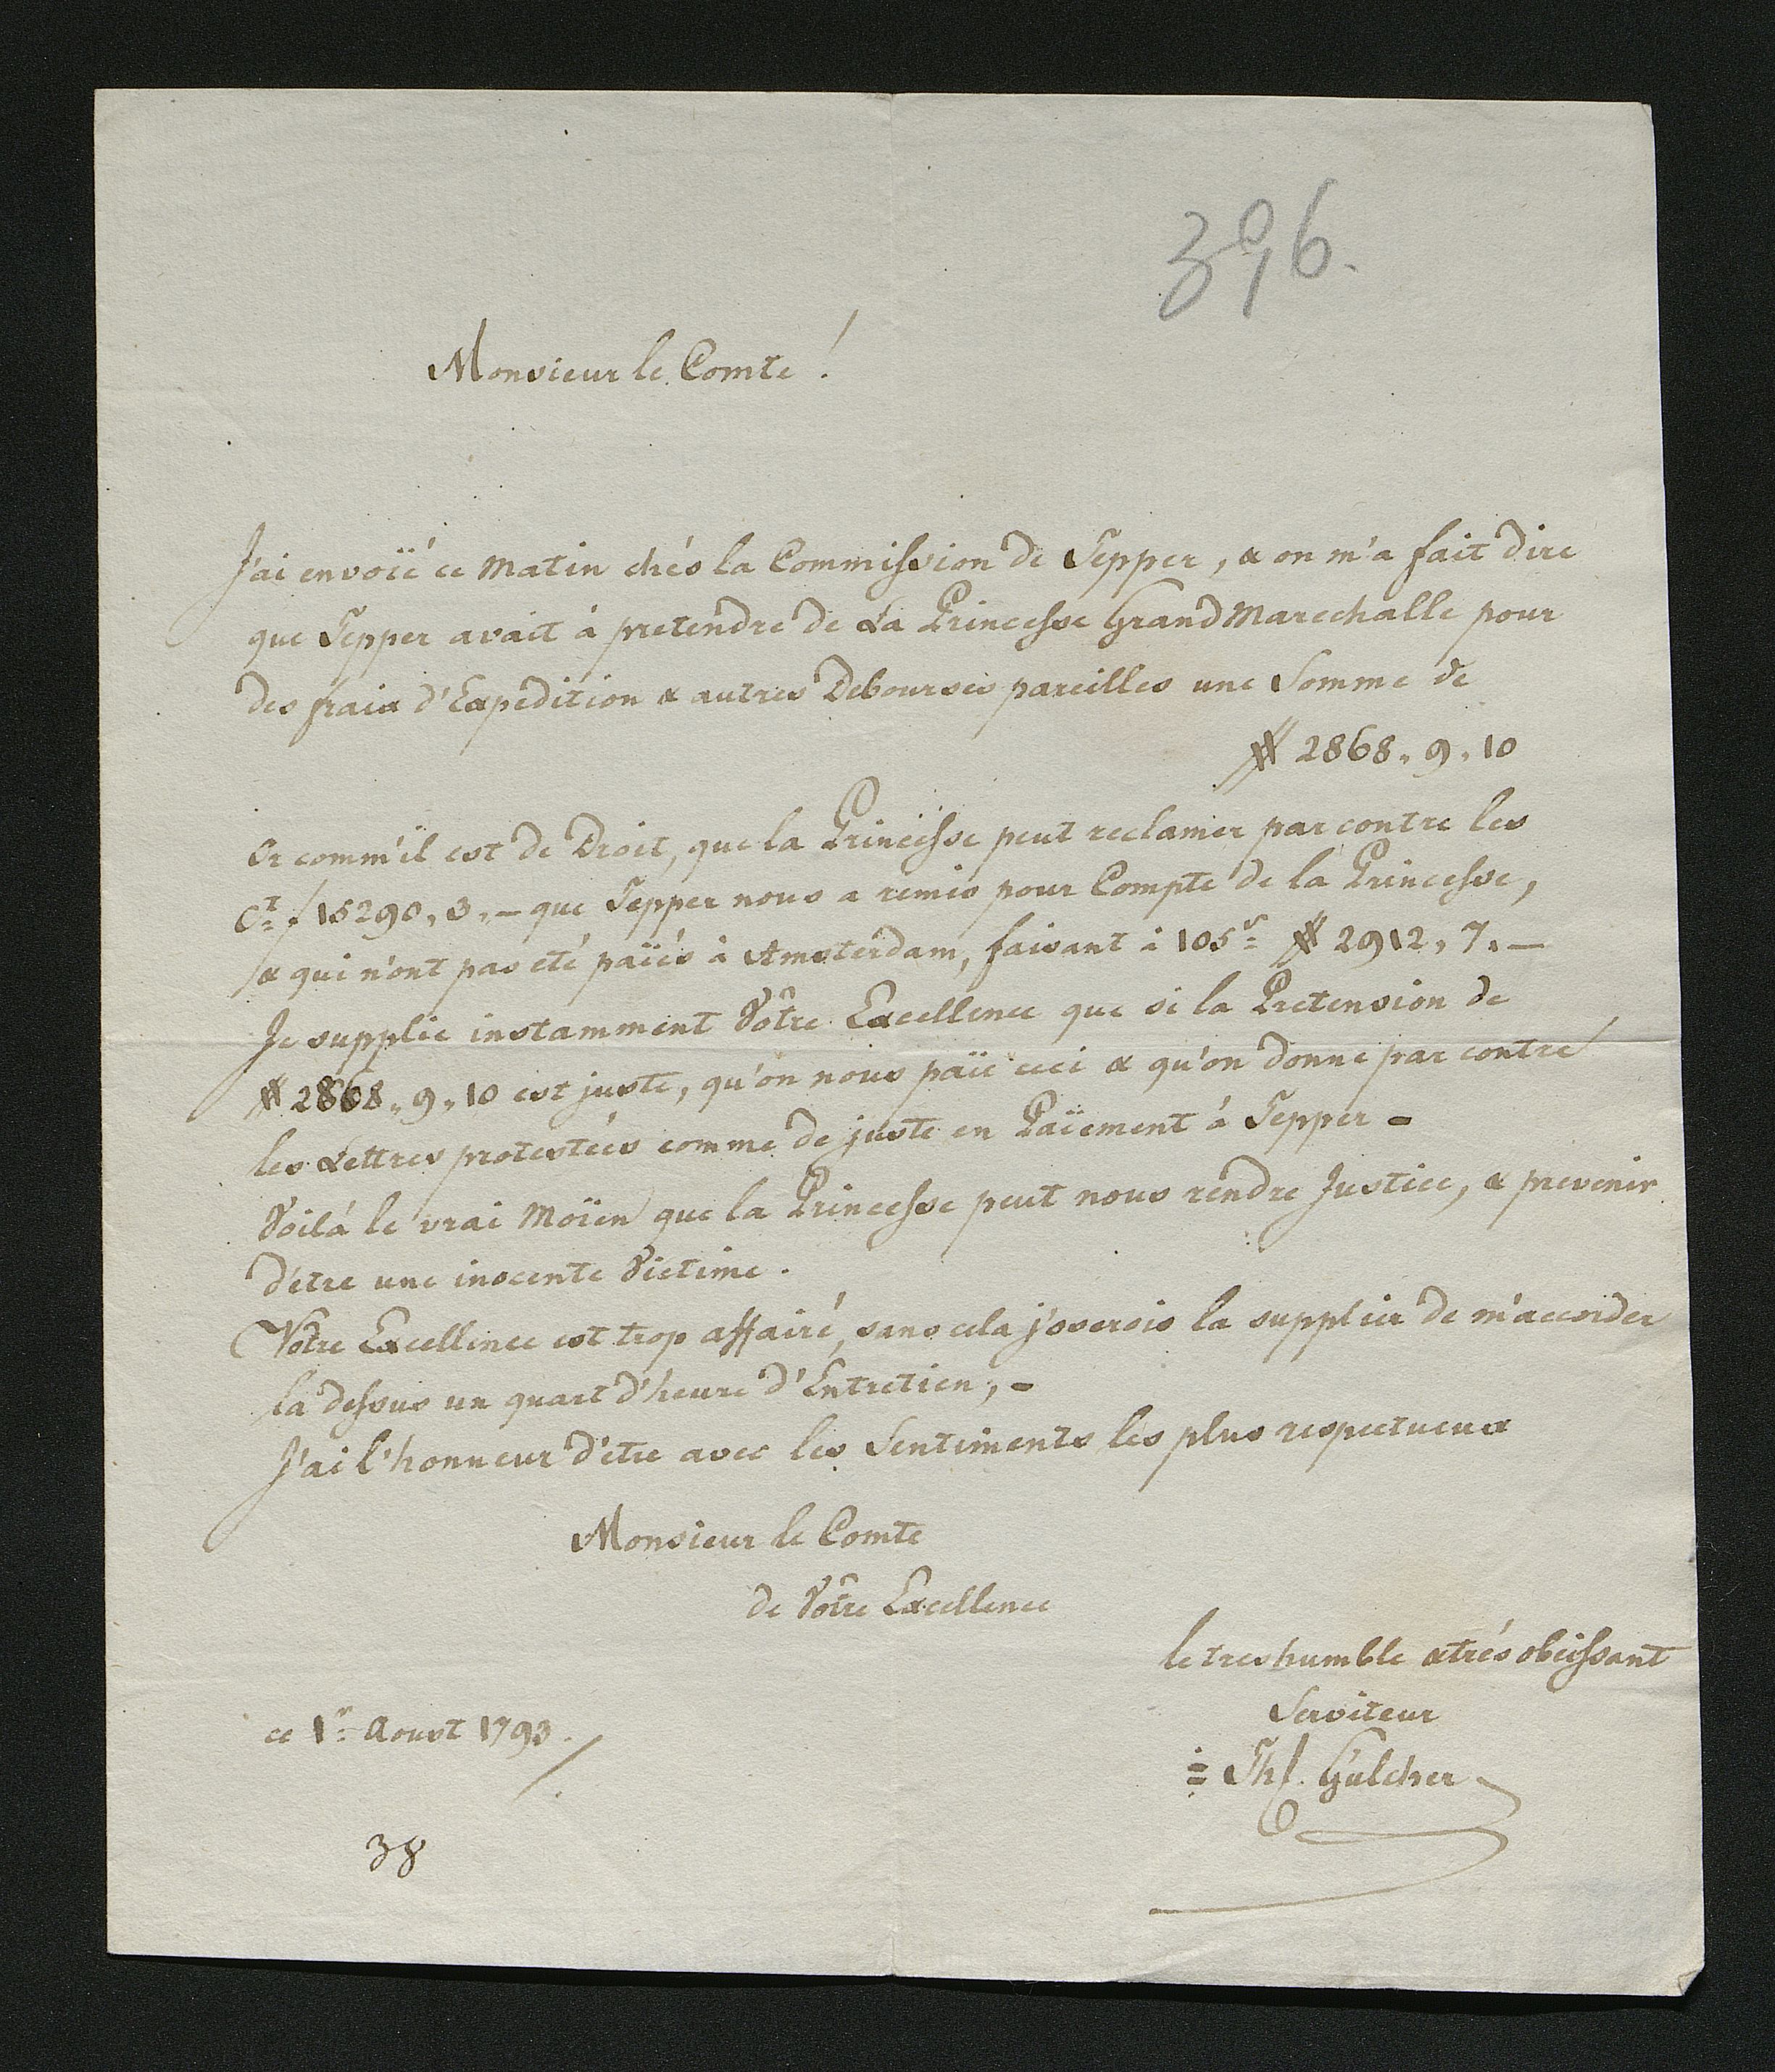 396.
Monsieur le Comte!
J'ai envoïé ce Matin chés la Commission de Tepper, & on m'a fait dire
que Tepper avait à pretendre de La Princesse Grand Marechalle pour
des fraix d'Expedition & autres Debourses pareilles une Somme de
# 2868. 9. 10
Or comm'il est de Droit, que la Princesse peut reclamer par contre les
Ct f 15290. 3. — que Tepper nous a remis pour Compte de la Princesse,
& qui n'ont pas eté païés à Amsterdam, faisant à 105s # 2912. 7. —
Je supplie instamment Vôtre Excellence que si la Pretension de
# 2868. 9. 10 est juste, qu'on nous païe ceci & qu'on donne par contre
les Lettres protestées comme de juste en Païement à Tepper -
Voilà le vrai Moïen que la Princesse peut nous rendre Justice, & prevenir
d'etre une inocente Victime.
Vôtre Excellence est trop affairé, sans cela j'oserois la supplier de m'accorder
la dessus un quart d'heure d'Entretien, -
J'ai l'honneur d'etre avec les Sentiments les plus respectueux
Monsieur le Comte
de Vôtre Excellence
le tres humble & trés obeissant
Serviteur
ce 1r Aoust 1793.
Th. Gülcher
38